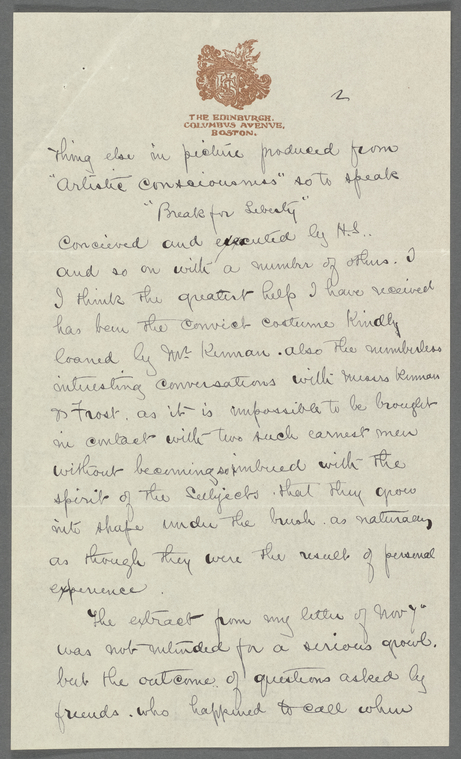 2
THE EDINBURGH.
COLUMBUS AVENUE,
BOSTON.
thing else in picture produced from
"Artistic Consciousness" so to speak
"Break for Liberty"
Concieved and executed by H.S..
and so on with a number of others. I
I think the greatest help I have received
has been the convict costume Kindly
loaned by Mr Kennan. also the numberless
interesting conversations with Messrs Kennan
& Frost. as it is impossible to be brought
in contact with two such earnest men
without becoming so imbued with the
spirit of the Subjects. that they grow
into shape under the brush. as naturally
as though they were the result of personal
experience.
The extract from my letter of Nov 7"
was not intended for a serious growl.
but the outcome of questions asked by
friends. who happened to call when